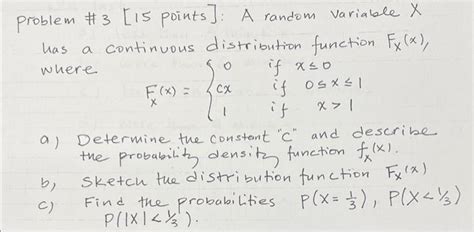 Problem #3 [15 points]: A random variable X
has a continuous distribution function Fx(x),
where
Fx(x) = { 0 if x ≤ 0
cx if 0 ≤ x ≤ 1
1 if x > 1
a) Determine the constant "c" and describe
the probability density function fx(x).
b, Sketch the distribution function Fx(x)
c) Find the probabilities P(X = 1/3), P(X < 1/3)
P(|X| < 1/3).